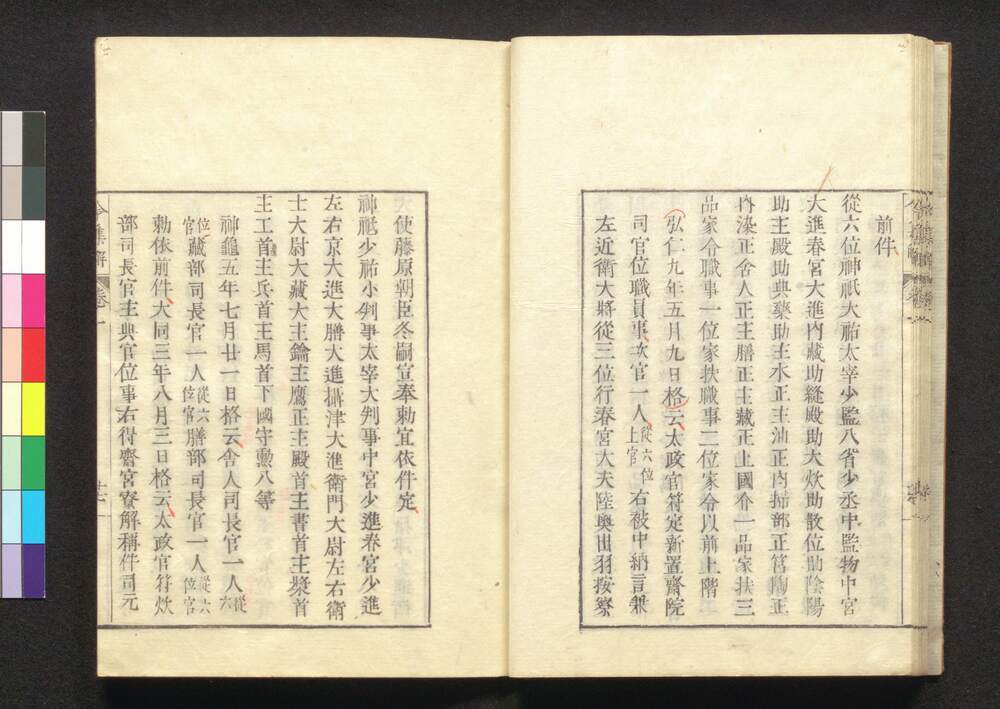 前件
從六位神祇大祐太宰少監八省少丞中監物中宮
大進春宮大進內藏助縫殿助大炊助散位助陰陽
助主殿助典藥助主水正主油正內掃部正筥陶正
內染正舍人正主膳正主藏正上國介一品家扶三
品家令職事一位家扶職事二位家令以前上階
弘仁九年五月九日格云太政官符定新置齋院
司官位職員事次官一人從六位上官右被中納言兼
左近衛大將從三位行春宮大夫陸奧出羽按察
大使藤原朝臣冬嗣宣奉勅宜依件定
神祇少祐小判事太宰大判事中宮少進春宮少進
左右京大進大膳大進攝津大進衛門大尉左右衛
士大尉大藏大主鑰主鷹正主殿首主書首主漿首
主工首主兵首主馬首下國守勳八等
神龜五年七月廿一日格云舍人司長官一人從六
位官藏部司長官一人從六位官膳部司長官一人從六位官
勅依前件大同三年八月三日格云太政官符炊
部司長官主典官位事右得齋宮寮解稱件司元
令集解 卷一